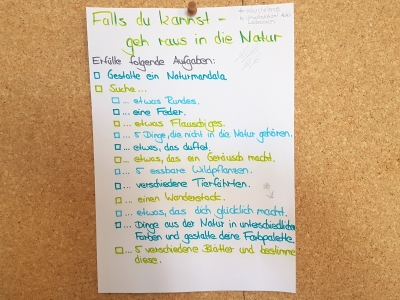 Falls du kannst -
geh raus in die Natur
Erfülle folgende Aufgaben:
Gestalte ein Naturmandala
Suche ...
... etwas Rundes.
... eine Feder.
... etwas Flauschiges.
... 5 Dinge, die nicht in die Natur gehören.
... etwas, das duftet.
... etwas, das ein Geräusch macht.
... 5 essbare Wildpflanzen.
... verschiedene Tierfährten.
... einen Wanderstock.
... etwas, das dich glücklich macht.
... Dinge aus der Natur in unterschiedlichen
Farben und gestalte deine Farbpalette.
... 5 verschiedene Blätter und bestimme
diese.